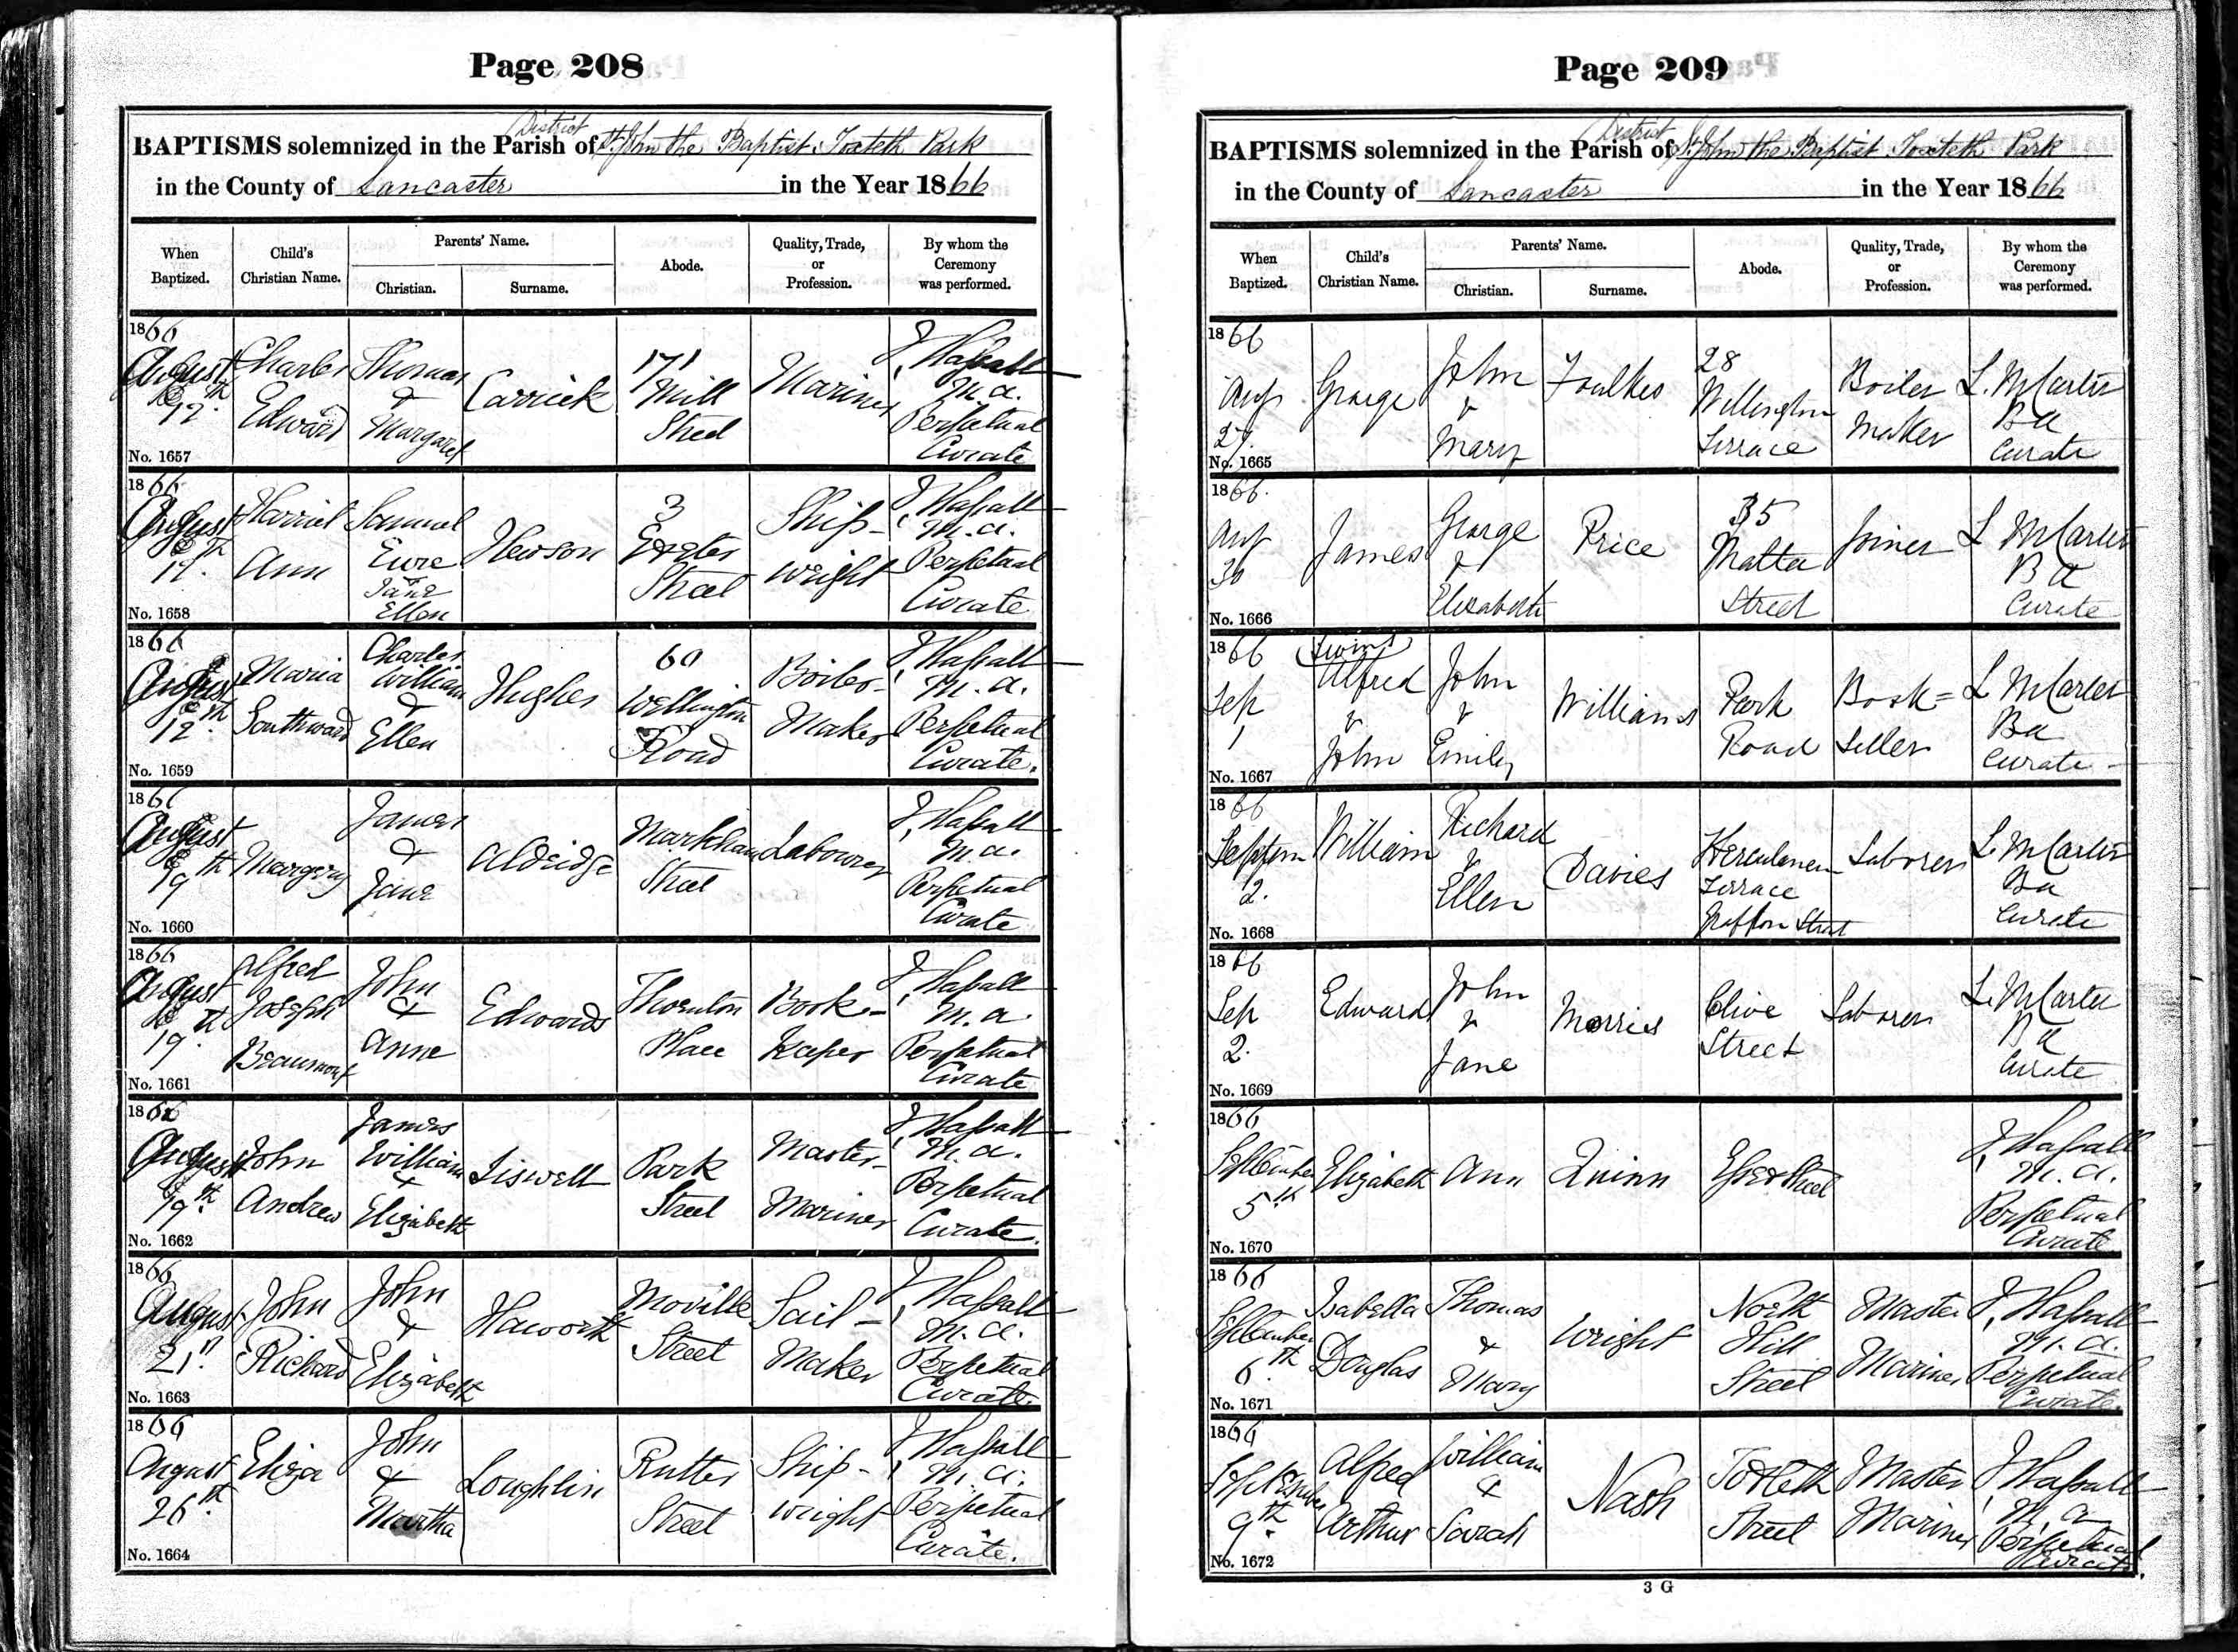 Page 208
BAPTISMS solemnized in the Parish of St John the Baptist Toxteth Park
District
in the County of Lancaster in the Year 1866
When Baptized.
Child's Christian Name.
Parents' Name.
Christian.
Surname.
Abode.
Quality, Trade, or Profession.
By whom the Ceremony was performed.
1866
August 12th
Charles Edward
Thomas & Margaret
Carrick
171 Mill Street
Mariner
J. Hassall M.A. Perpetual Curate
No. 1657
1866
August
Harriet Ann
Samuel Eure & Jane Ellen
Hewson
3 Exeter Street
Ship-wright
J. Hassall M.A. Perpetual Curate
No. 1658
1866
August 12th
Maria Southward
Charles William & Ellen
Hughes
60 Wellington Road
Boiler-Maker
J. Hassall M.A. Perpetual Curate.
No. 1659
1866
August 19th
Margery
James & Jane
Aldridge
Markham Street
Labourer
J. Hassall M.A. Perpetual Curate
No. 1660
1866
August 19th
Alfred Joseph Beaumont
John & Anne
Edwards
Thornton Place
Book-Keeper
J. Hassall M.A. Perpetual Curate
No. 1661
1866
August 19th
John Andrew
James William & Elizabeth
Liswell
Park Street
Master-Mariner
J. Hassall M.A. Perpetual Curate.
No. 1662
1866
August 21st
John Richard
John & Elizabeth
Haworth
Moville Street
Sail-Maker
J. Hassall M.A. Perpetual Curate.
No. 1663
1866
August 26th
Eliza
John & Martha
Loughlin
Rutter Street
Ship-wright
J. Hassall M.A. Perpetual Curate.
No. 1664
Page 209
BAPTISMS solemnized in the Parish of St John the Baptist Toxteth Park
District
in the County of Lancaster in the Year 1866
When Baptized.
Child's Christian Name.
Parents' Name.
Christian.
Surname.
Abode.
Quality, Trade, or Profession.
By whom the Ceremony was performed.
1866
Aug 27.
George
John & Mary
Foulkes
28 Wellington Terrace
Boiler Maker
L. McCarter BA Curate
No. 1665
1866.
Aug 30
James
George & Elizabeth
Price
35 Malta Street
Joiner
L McCarter BA Curate
No. 1666
1866
Sep 1
(Twins) Alfred & John
John & Emily
Williams
Park Road
Book=Seller
L McCarter BA Curate
No. 1667
1866
Septem 2.
William
Richard & Ellen
Davies
Herculaneum Terrace Grafton Street
Laborer
L. McCarter BA Curate
No. 1668
1866
Sep 2.
Edward
John & Jane
Morries
Clive Street
Laborer
L. McCarter BA Curate
No. 1669
1866
September 5th
Elizabeth
Ann
Quinn
Street
J. Hassall M.A. Perpetual Curate
No. 1670
1866
September 6th
Isabella Douglas
Thomas & Mary
Wright
North Hill Street
Master Mariner
J. Hassall M.A. Perpetual Curate.
No. 1671
1866
September 9th
Alfred Arthur
William & Sarah
Nash
Toxteth Street
Master Mariner
J. Hassall M.A. Perpetual Curate.
No. 1672
3 G